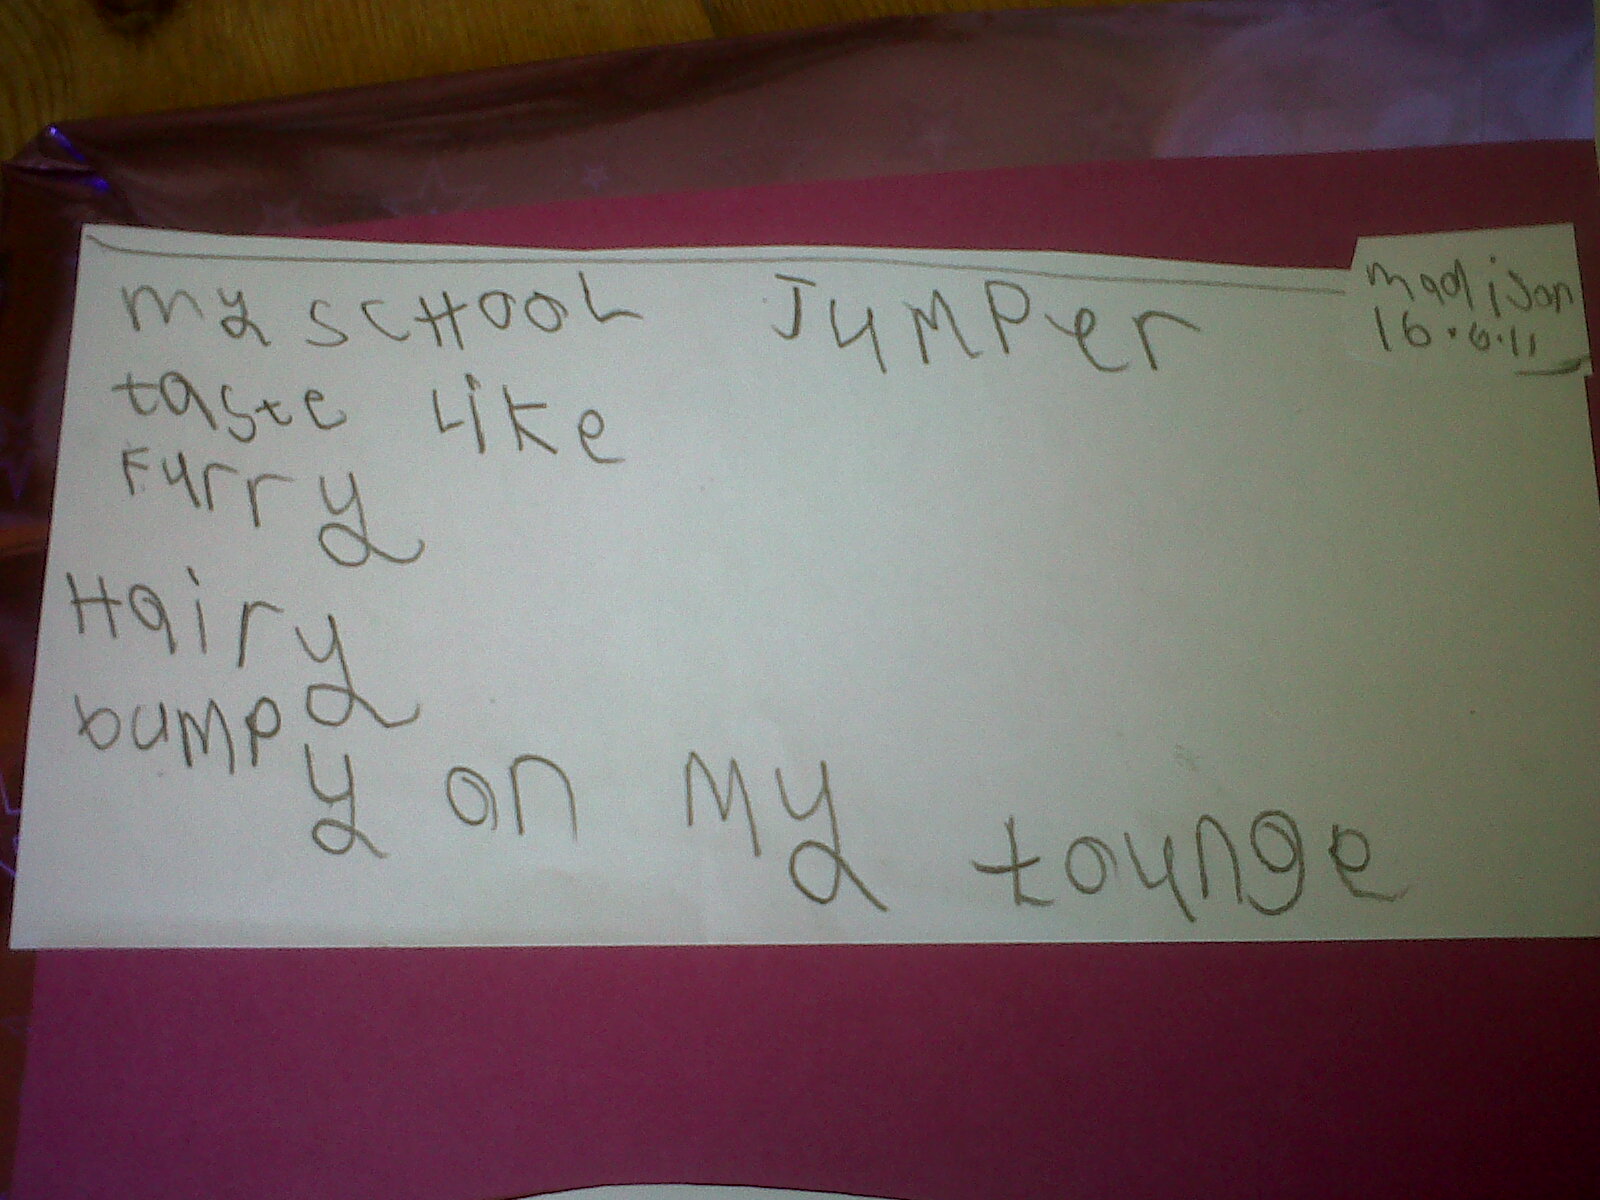 my SCHOOL JUMPer
taste Like
Furry
Hairy
bumpy on My
tounge
madison
16.6.11